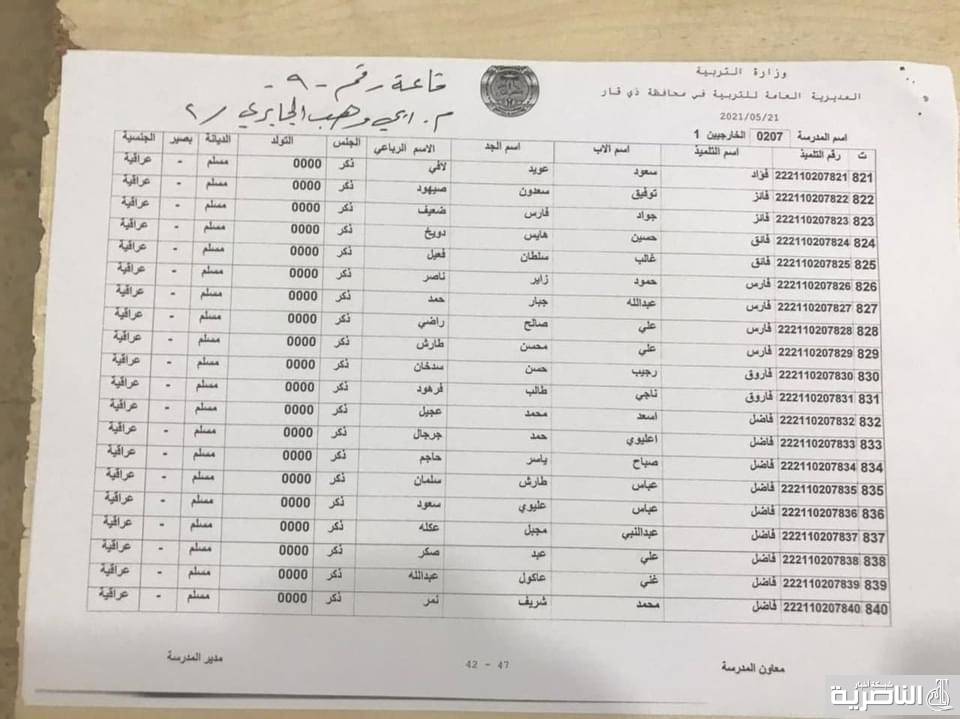 وزارة التربية
المديرية العامة للتربية في محافظة ذي قار
2021/05/21
قاعة رقم - ٩ -
م. ابي وهب الجابري / ٢
اسم المدرسة 0207 الخارجيين 1
ت رقم التلميذ اسم التلميذ اسم الاب اسم الجد الاسم الرباعي الجنس التولد الديانة بصير الجنسية
821 222110207821 فؤاد سعود عويد لافي ذكر 0000 مسلم - عراقية
822 222110207822 فائز توفيق سعدون صيهود ذكر 0000 مسلم - عراقية
823 222110207823 فائز جواد فارس ضعيف ذكر 0000 مسلم - عراقية
824 222110207824 فائق حسين هايس دويخ ذكر 0000 مسلم - عراقية
825 222110207825 فائق غالب سلطان فعيل ذكر 0000 مسلم - عراقية
826 222110207826 فارس حمود زاير ناصر ذكر 0000 مسلم - عراقية
827 222110207827 فارس عبدالله جبار حمد ذكر 0000 مسلم - عراقية
828 222110207828 فارس علي صالح راضي ذكر 0000 مسلم - عراقية
829 222110207829 فارس علي محسن طارش ذكر 0000 مسلم - عراقية
830 222110207830 فاروق رجيب حسن سدخان ذكر 0000 مسلم - عراقية
831 222110207831 فاروق ناجي طالب فرهود ذكر 0000 مسلم - عراقية
832 222110207832 فاضل اسعد محمد عجيل ذكر 0000 مسلم - عراقية
833 222110207833 فاضل اعليوي حمد جرجال ذكر 0000 مسلم - عراقية
834 222110207834 فاضل صباح ياسر حاجم ذكر 0000 مسلم - عراقية
835 222110207835 فاضل عباس طارش سلمان ذكر 0000 مسلم - عراقية
836 222110207836 فاضل عباس عليوي سعود ذكر 0000 مسلم - عراقية
837 222110207837 فاضل عبدالنبي مجبل عكله ذكر 0000 مسلم - عراقية
838 222110207838 فاضل علي عبد صكر ذكر 0000 مسلم - عراقية
839 222110207839 فاضل غني عاكول عبدالله ذكر 0000 مسلم - عراقية
840 222110207840 فاضل محمد شريف نمر ذكر 0000 مسلم - عراقية
معاون المدرسة 42 - 47 مدير المدرسة
شبكة أخبار
الناصرية